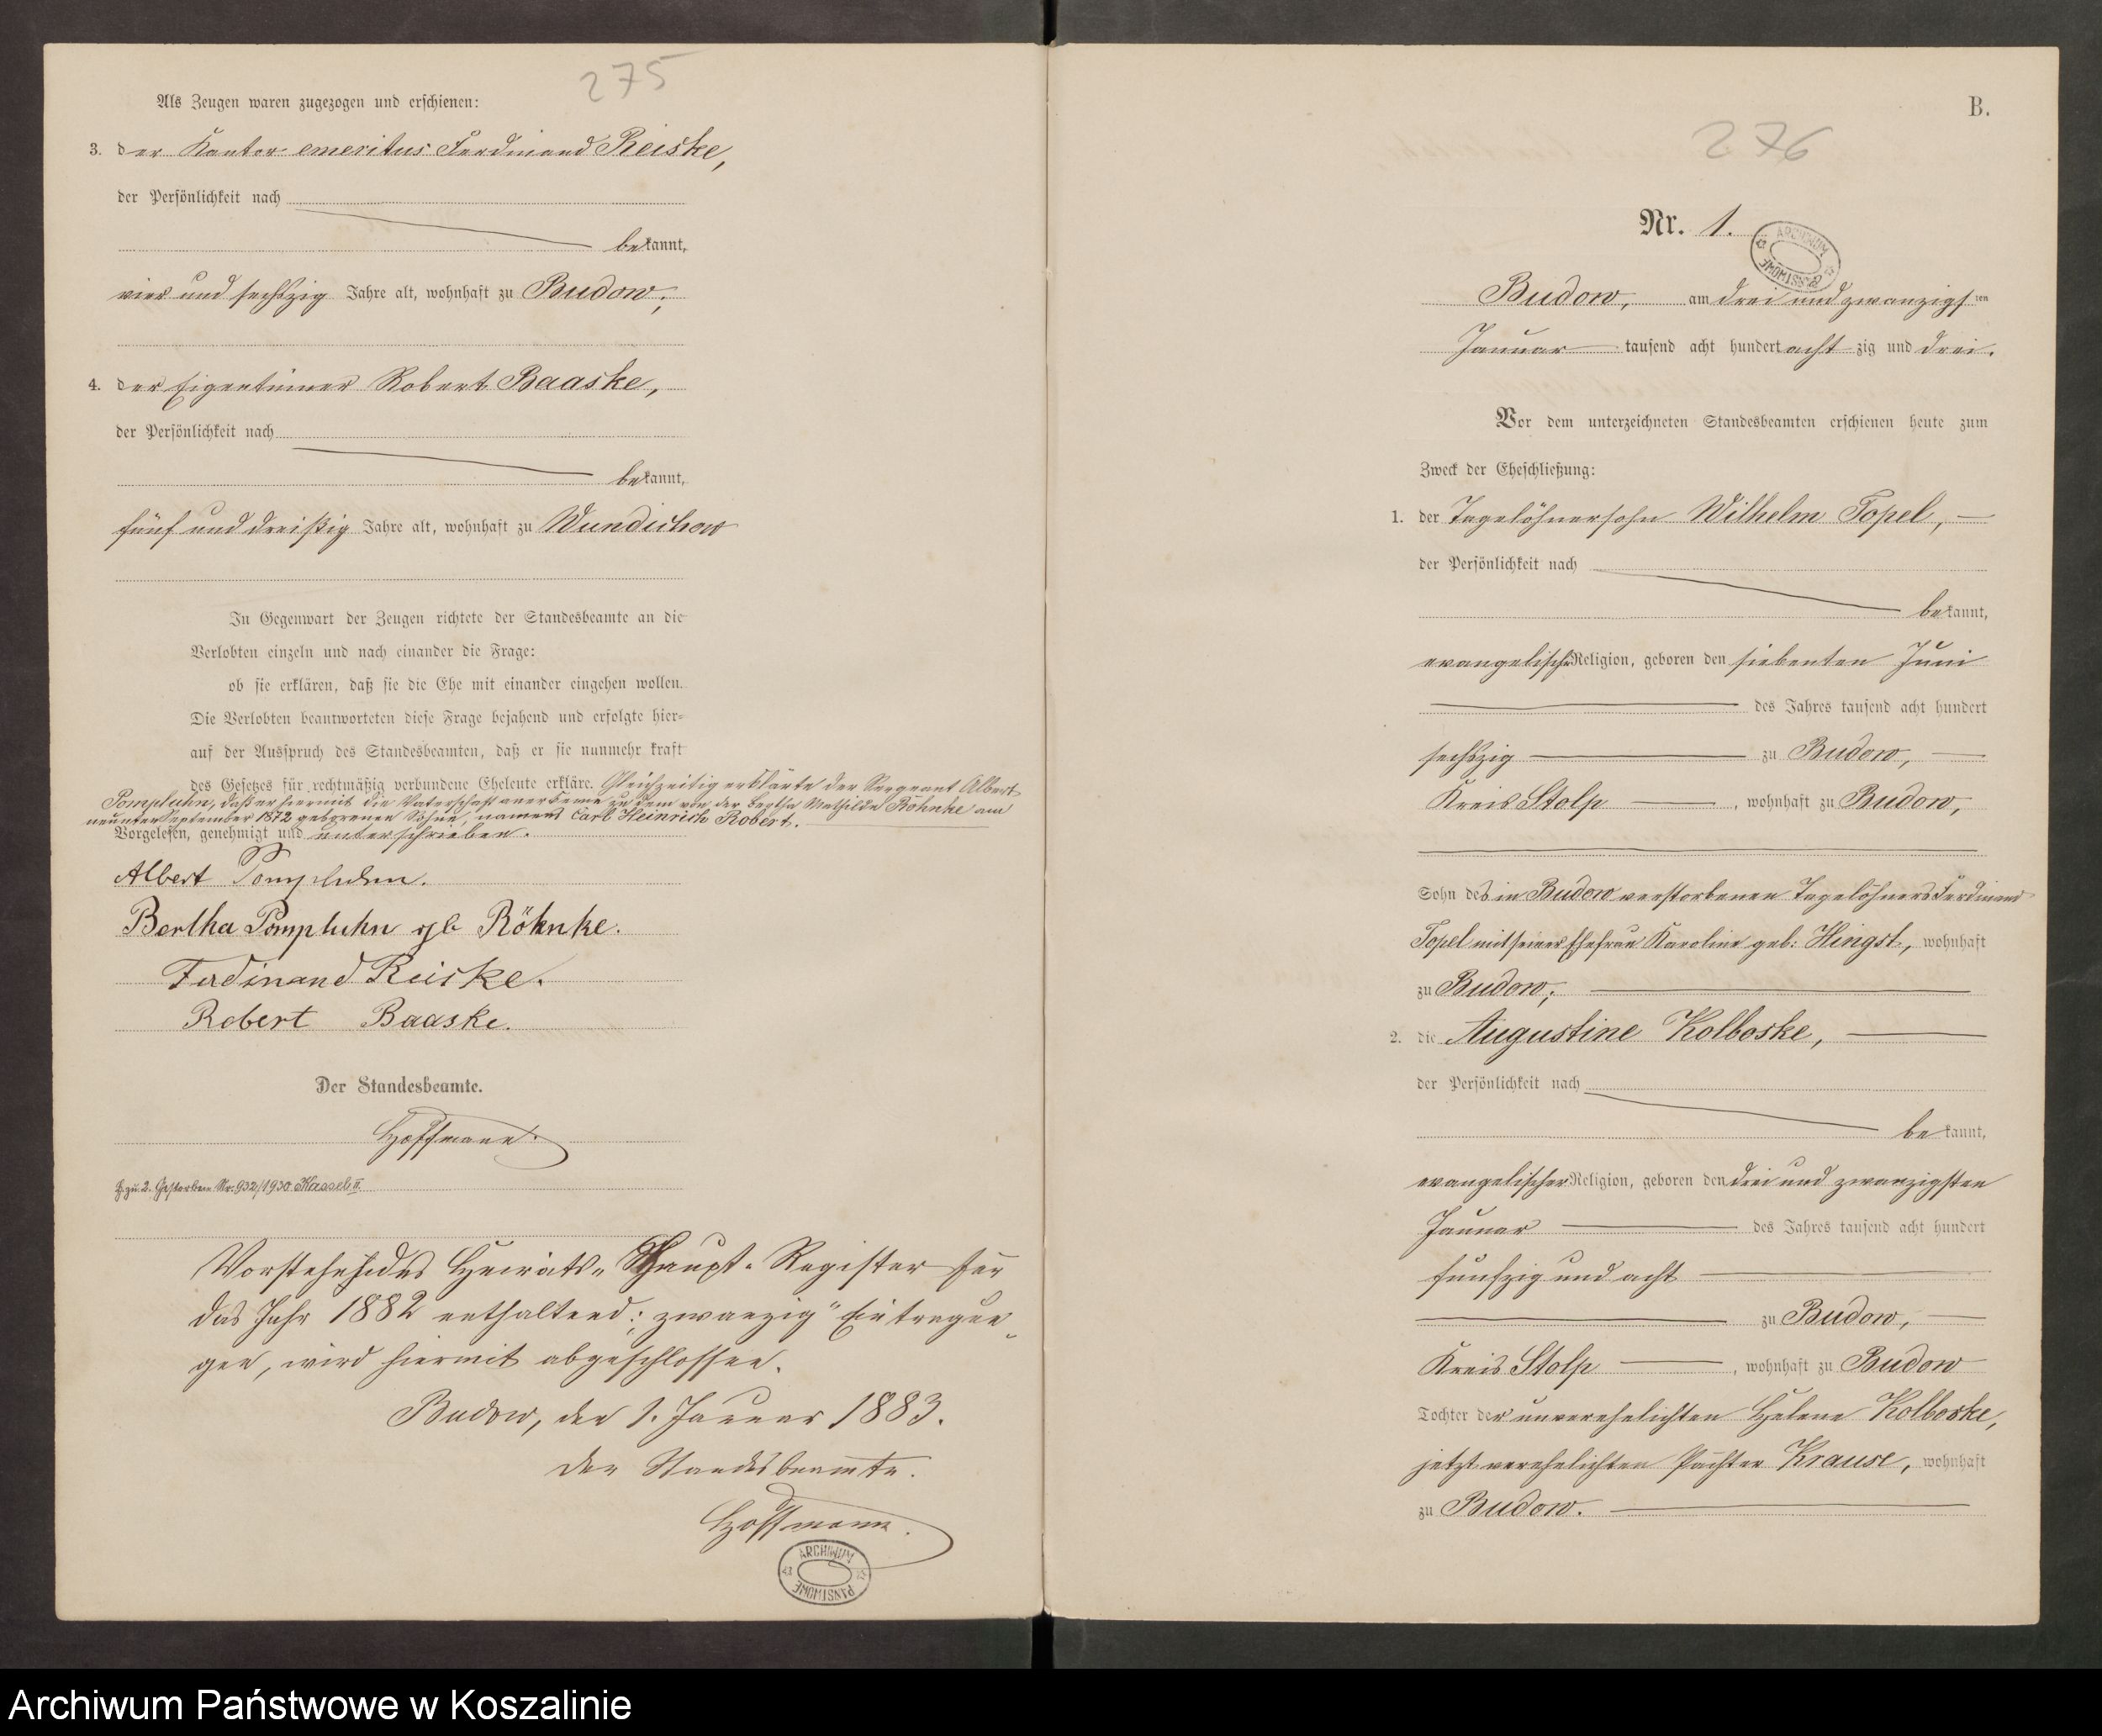 275
Als Zeugen waren zugezogen und erschienen:
3. der Kantor emeritus Ferdinand Reiske,
der Persönlichkeit nach
bekannt,
vier und sechszig Jahre alt, wohnhaft zu Budow,
4. der Eigentümer Robert Baaske,
der Persönlichkeit nach
bekannt,
fünf und dreißig Jahre alt, wohnhaft zu Wundichow
In Gegenwart der Zeugen richtete der Standesbeamte an die
Verlobten einzeln und nach einander die Frage:
ob sie erklären, daß sie die Ehe mit einander eingehen wollen.
Die Verlobten beantworteten diese Frage bejahend und erfolgte hier-
auf der Ausspruch des Standesbeamten, daß er sie nunmehr kraft
des Gesetzes für rechtmäßig verbundene Eheleute erkläre. Gleichzeitig erklärte der Sergeant Albert
Pompluhn, daß er hiermit die Vaterschaft anerkenne zu dem von der Bertha Mathilde Röhnke am
neunten September 1872 geborenen Sohne, namens Carl Heinrich Robert.
Vorgelesen, genehmigt und unterschrieben.
Albert Pompluhn.
Bertha Pompluhn gb Röhnke.
Ferdinand Reiske.
Robert Baaske.
Der Standesbeamte.
Hoffmann.
H. zu 2. Gestorben Nr. 932/1930 Kassel II
Vorstehendes Heirats-Haupt-Register für
das Jahr 1882 enthaltend: „zwanzig" Eintragun-
gen, wird hiermit abgeschlossen.
Budow, den 1. Januar 1883.
Der Standesbeamte.
Hoffmann.
ARCHIWUM PAŃSTWOWE
B.
276
Nr. 1.
ARCHIWUM PAŃSTWOWE
Budow, am drei und zwanzigsten
Januar tausend acht hundert acht zig und drei.
Vor dem unterzeichneten Standesbeamten erschienen heute zum
Zweck der Eheschließung:
1. der Tagelöhnersohn Wilhelm Topel,
der Persönlichkeit nach
bekannt,
evangelischer Religion, geboren den siebenten Juni
des Jahres tausend acht hundert
sechszig zu Budow,
Kreis Stolp, wohnhaft zu Budow,
Sohn des in Budow verstorbenen Tagelöhners Ferdinand
Topel mit seiner Ehefrau Karoline geb: Hingst, wohnhaft
zu Budow;
2. die Augustine Kolboske,
der Persönlichkeit nach
bekannt,
evangelischer Religion, geboren den drei und zwanzigsten
Januar des Jahres tausend acht hundert
funfzig und acht
zu Budow,
Kreis Stolp, wohnhaft zu Budow
Tochter der unverehelichten Helene Kolboske,
jetzt verehelichten Pächter Krause, wohnhaft
zu Budow.
Archiwum Państwowe w Koszalinie